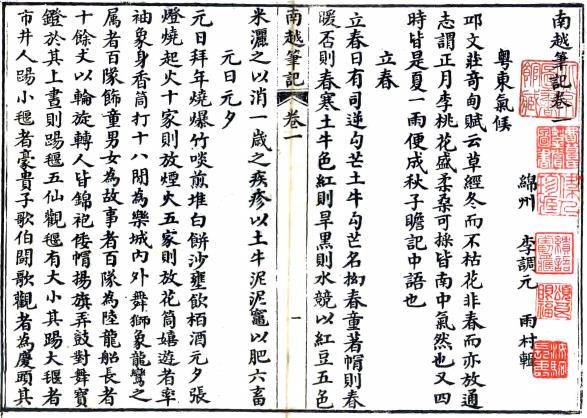 南越筆記卷一
綿州 李調元 雨村輯
粵東氣候
邛文莊奇甸賦云草經冬而不枯花非春而亦放通
志謂正月李桃花盛柔桑可採皆南中氣然也又四
時皆是夏一雨便成秋子瞻記中語也
立春
立春日有司逆勾芒土牛勾芒名拗春童著帽則春
暖否則春寒土牛色紅則旱黑則水競以紅豆五色
南越筆記 卷一 一
米灑之以消一歲之疾疹以土牛泥泥竈以肥六畜
元日元夕
元日拜年燒爆竹啖煎堆白餅沙壅飲栢酒元夕張
燈燒起火十家則放煙火五家則放花筒嬉遊者率
袖象身香筒打十八閒為樂城內外舞獅象龍鸞之
屬者百隊飾童男女為故事者百隊為陸龍船長者
十餘丈以輪旋轉人皆錦袍倭帽揚旗弄鼓對舞寶
鐙於其上晝則踢毽五仙觀毽有大小其踢大毽者
市井人踢小毽者豪貴子歌伯鬭歌觀者為慶頭其